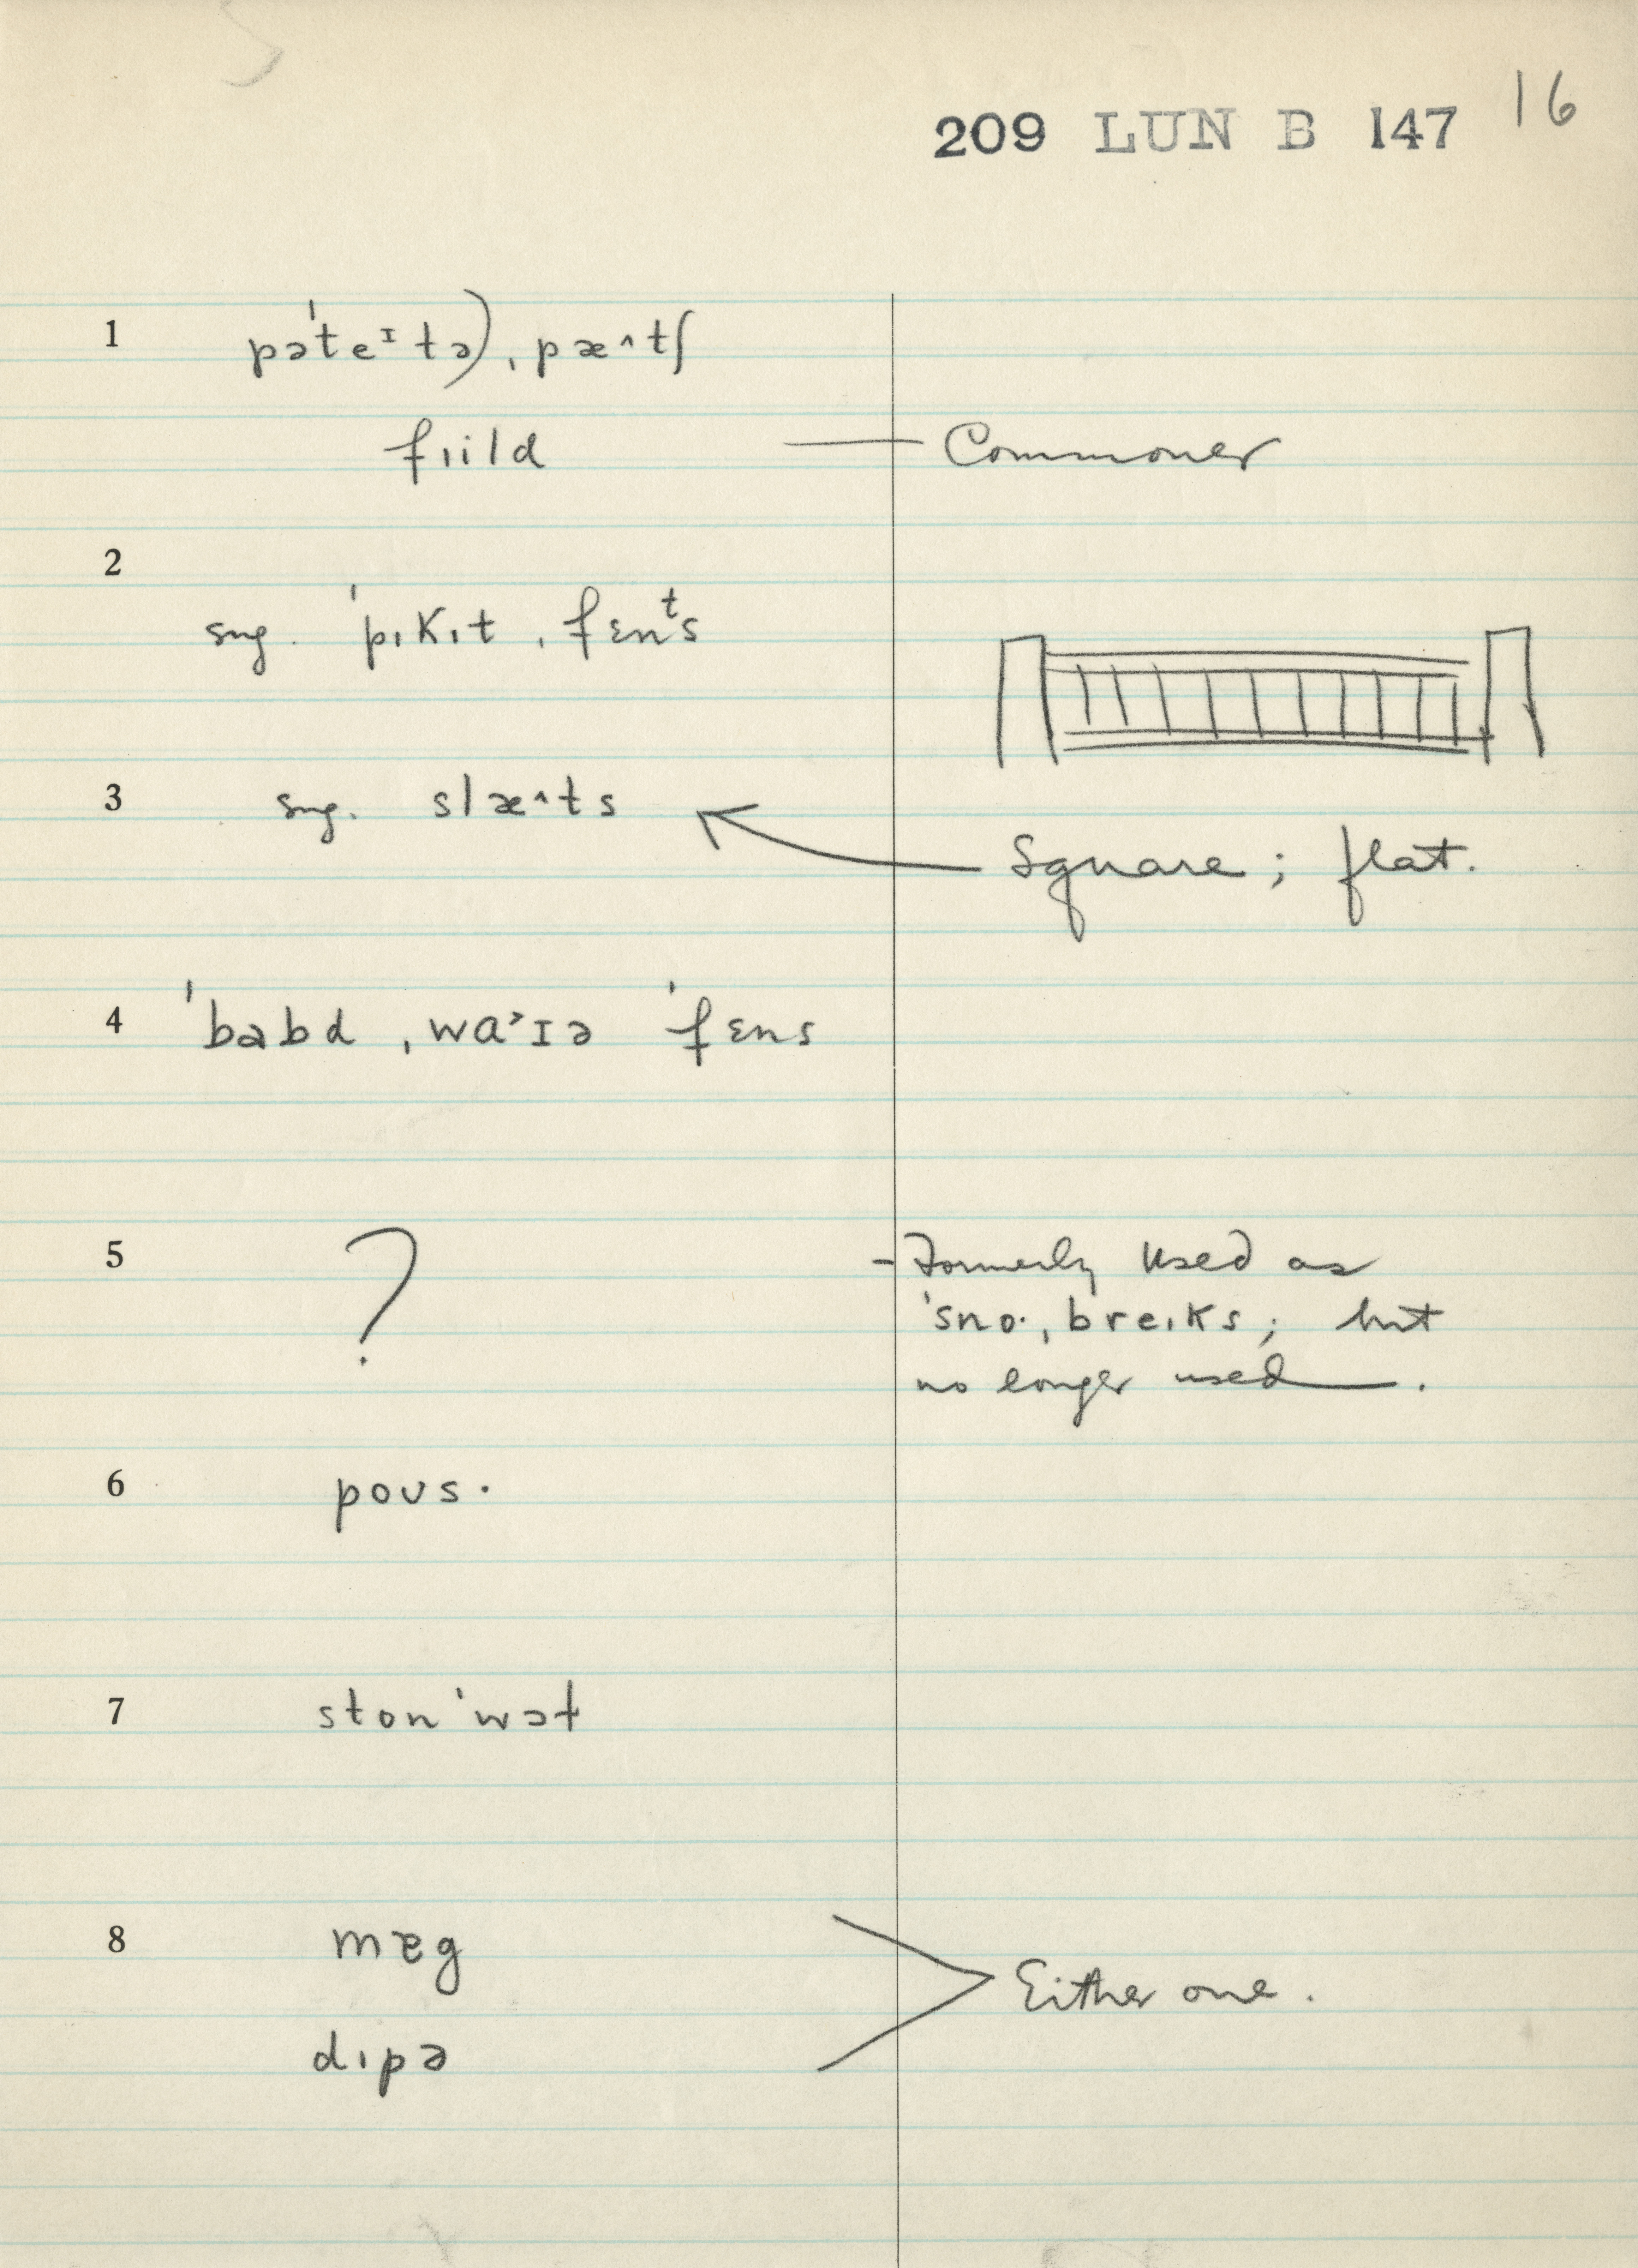 209 LUN B 147 16
1 pə'teᴵtə), ˌpæ^tʃ
fiild — Commoner
2
sug. 'pɪkɪt ˌfɛnᵗs
3 sug. slæ^ts
Square; flat.
4 'bəbd ˌwa˃ɪə 'fɛns
5 ? - Formerly used as
'sno· ˌbreɪks; but
no longer used.
6 poʊs.
7 ston 'wɔɫ
8 mæg
Either one.
dɪpə